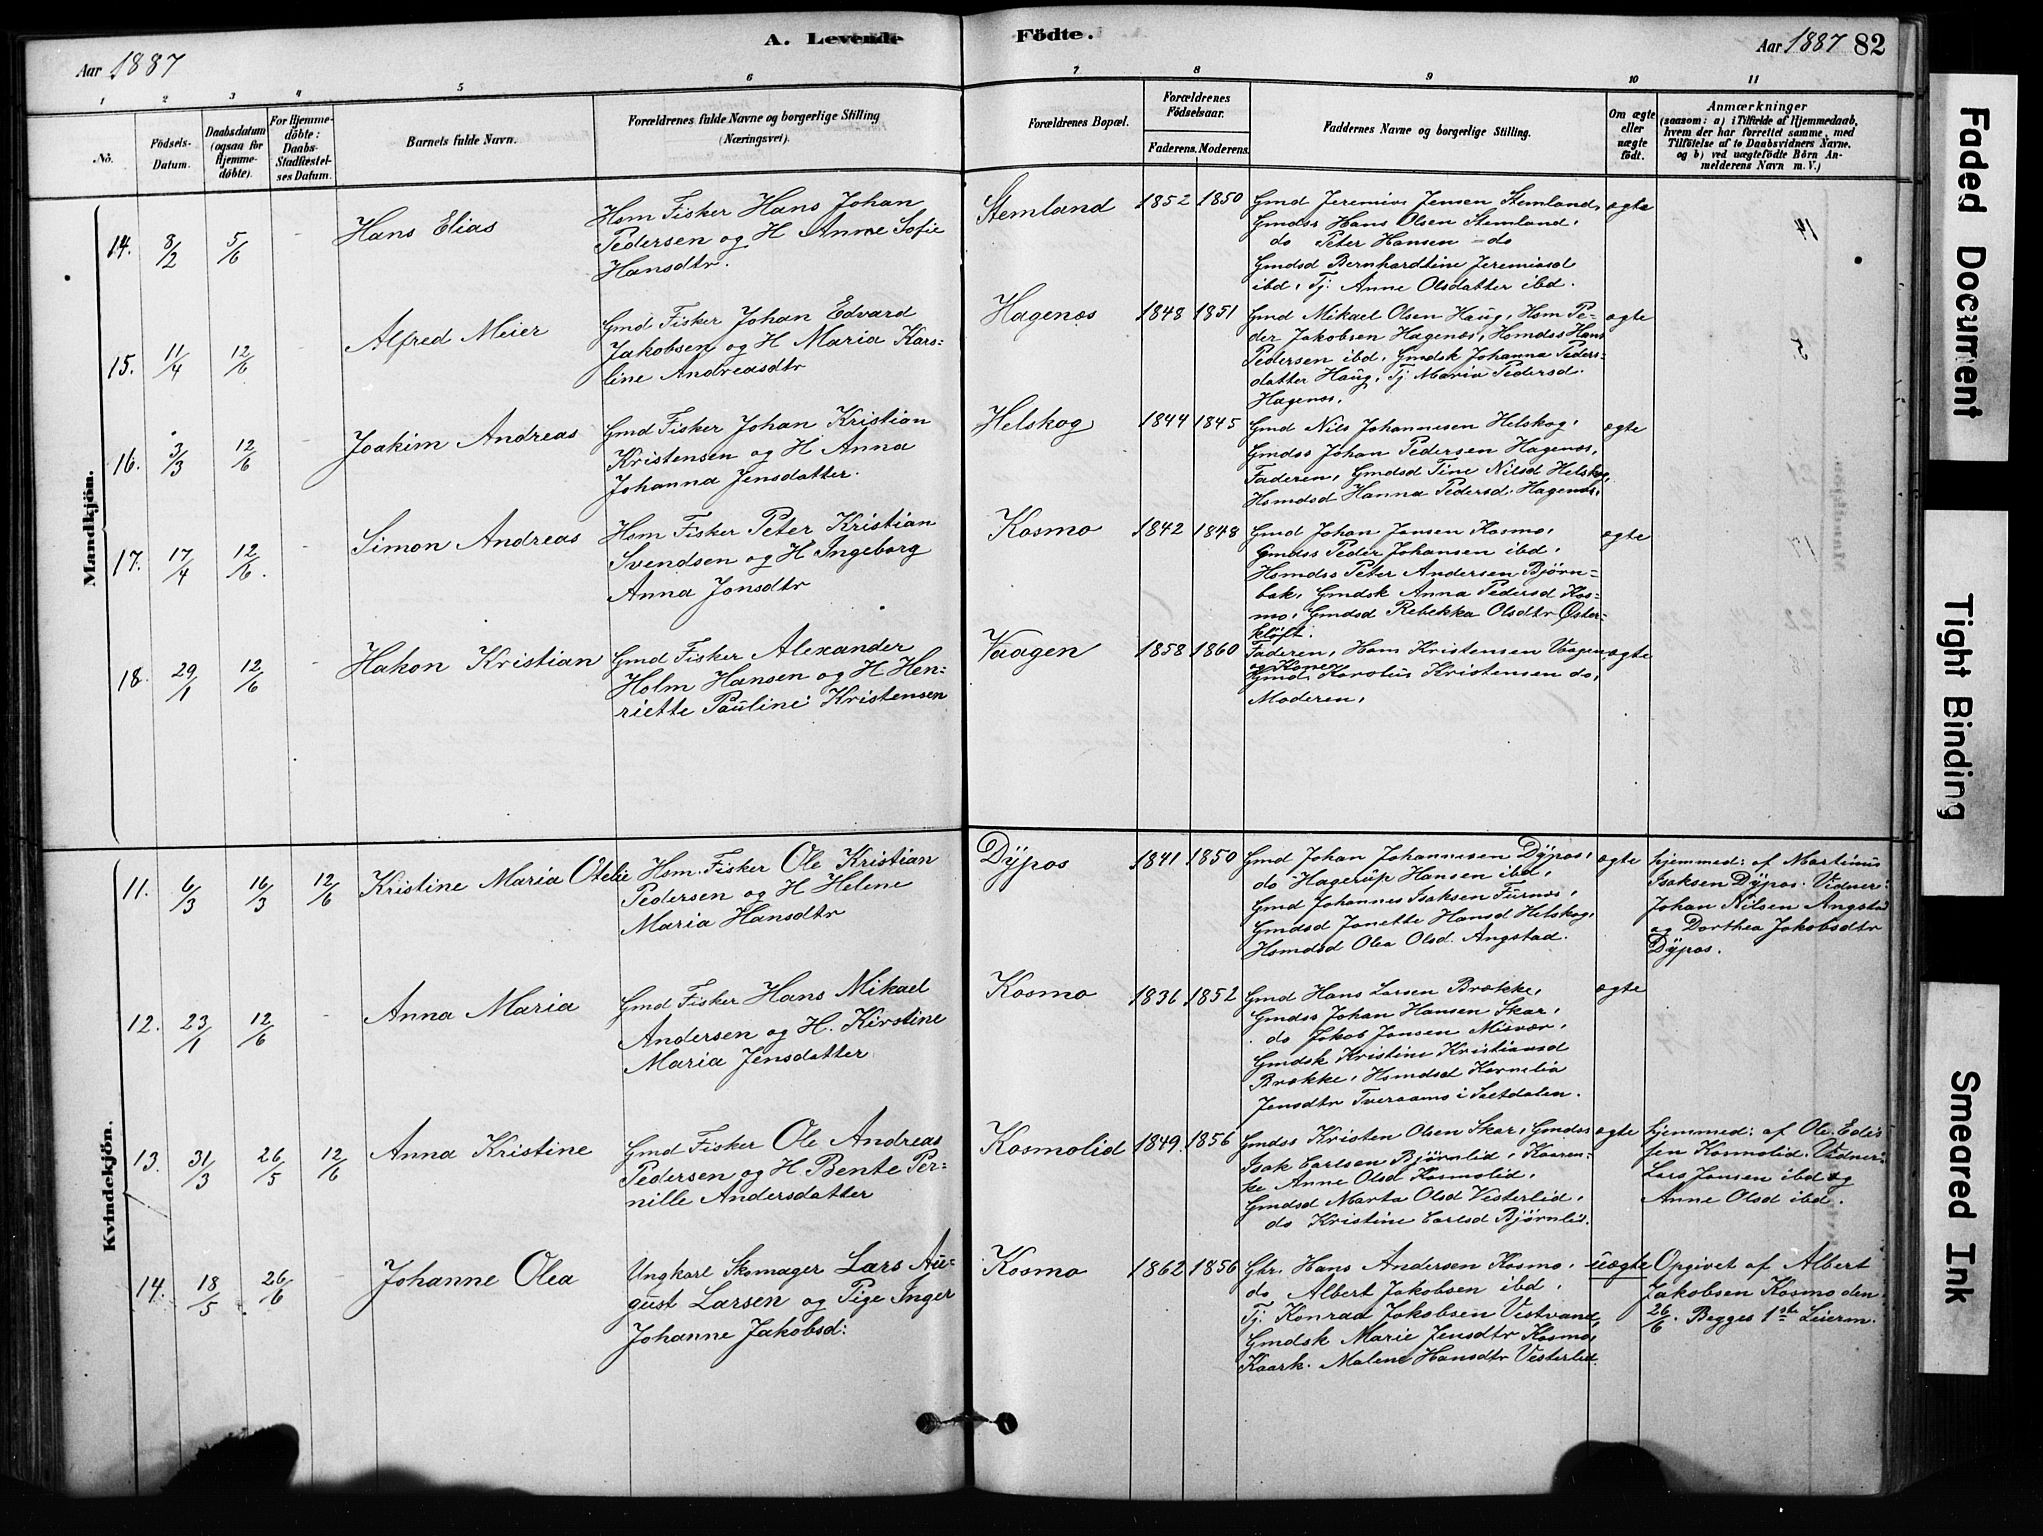 A. Levende Födte.
Aar 1887
Aar 1887 82
1 2 3 4 5 6 7 8 9 10 11
No.
Födsels-
Datum.
Daabsdatum
(ogsaa for
Hjemme-
döbte).
For Hjemme-
döbte:
Daabs-
Stadfæstel-
ses Datum.
Barnets fulde Navn.
Forældrenes fulde Navne og borgerlige Stilling
(Næringsvei).
Forældrenes Bopæl.
Forældrenes
Födselsaar.
Faderens. Moderens.
Faddernes Navne og borgerlige Stilling.
Om ægte
eller
uægte
födt.
Anmærkninger
(saasom: a) i Tilfælde af Hjemmedaab,
hvem der har forrettet samme, med
Tilföielse af to Daabsvidners Navne.
og b) ved uægtefödte Börn An-
melderens Navn m. V.)
Mandkjön.
14. 8/2 5/6 -
Hans Elias
Hsm Fisker Hans Johan
Pedersen og H Anne Sofie
Hansdtr.
Stemland 1852 1850
Gmd Jeremias Jensen Stemland,
Gmdss Hans Olsen Stemland,
do Peter Hansen - do
Gmdsd Bernhardtine Jeremiasd
ibd, Tj. Anne Olsdatter ibd.
ægte
15. 11/4 12/6
Alfred Meier
Gmd Fisker Johan Edvard
Jakobsen og H Maria Kars-
line Andreasdtr
Hagenæs 1848 1851
Gmd Mikael Olsen Haug, Hsm Pe-
der Jakobsen Hagenæs, Hsmdss Hans
Pedersen ibd, Gmdsk Johanna Peders-
datter Haug, Tj Maria Pedersd.
Hagenæs.
ægte
16. 3/3 12/6 -
Joakim Andreas
Gmd Fisker Johan Kristian
Kristensen og H Anna
Johanna Jensdatter.
Helskog 1844 1845
Gmd Nils Johannesen Helskog,
Gmdss Johan Pedersen Hagenæs,
Faderen, Gmdsd Tine Nilsd Helskog,
Hsmdsd Hanna Pedersd. Hagenæs,
ægte
17. 17/4 12/6. -
Simon Andreas
Hsm Fisker Peter Kristian
Svendsen og H Ingeborg
Anna Jonsdtr
Kosmo 1842 1848
Gmd Johan Jonsen Kosmo,
Gmdss Peder Johansen ibd,
Hsmdss Peter Andersen Bjørn-
bak, Gmdsk Anna Pedersd Kos-
mo, Gmdsd Rebekka Olsdtr Øster-
kløft.
ægte
18. 29/1 12/6 -
Hakon Kristian
Gmd Fisker Alexander
Holm Hansen og H Hen-
riette Pauline Kristensen
Vaagen 1858 1860
Faderen, Hans Kristensen Vaagen
og Kone
Gmd Karolus Kristensen do,
Moderen,
ægte
Kvindekjön.
11. 6/3 16/3 12/6
Kristine Maria Otelie
Hsm. Fisker Ole Kristian
Pedersen og H Helene
Maria Hansdtr
Dypos 1841 1850
Gmd Johan Johannesen Dypos,
do Hagerup Hansen ibd,
Gmd Johannes Isaksen Furnes,
Gmdsd Janette Hansd Helskog,
Hsmdsd Olea Olsd. Angstad.
ægte
hjemmed: af Martinus
Isaksen Dypos. Vidner:
Johan Nilsen Angstad
og Dorthea Jakobsdtr
Dypos.
12. 23/1 12/6 -
Anna Maria
Gmd Fisker Hans Mikael
Andersen og H. Kirstine
Maria Jensdatter
Kosmo 1836 1852
Gmd Hans Larsen Brække,
Gmdss Johan Hansen Skar,
do Jakob Jonsen Misvær,
Gmdsk Kristine Kristiansd
Brække, Hsmdsd Kornelia
Jonsdtr Tveraamo i Saltdalen.
ægte
13. 31/3 26/5 12/6
Anna Kristine
Gmd Fisker Ole Andreas
Pedersen og H Bente Per-
nille Andersdatter
Kosmolid 1849. 1856
Gmdss Kristen Olsen Skar, Gmdss
Isak Carlsen Bjørnlid, Kaaren-
ke Anne Olsd Kosmolid,
Gmdsd Marta Olsd Vesterlid,
do Kristine Carlsd Bjørnlid.
ægte
hjemmed: af Ole Edis
sen Kosmolid. Vidner:
Lars Jonsen ibd og
Anne Olsd ibd.
14. 18/5 26/6 -
Johanne Olea
Ungkarl Skomager Lars Au-
gust Larsen og Pige Inger
Johanne Jakobsd:
Kosmo 1862 1856
Gbr. Hans Andersen Kosmo,
do Albert Jakobsen ibd,
Tj. Konrad Jakobsen Vestvand,
Gmdsk Marie Jensdtr Kosmo,
Kaark. Malene Hansdtr Vesterlid
uægte
Opgivet af Albert
Jakobsen Kosmo den
26/6. Begges 1ste Leierm.
Faded Document
Tight Binding
Smeared Ink